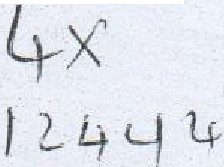 4x
12444